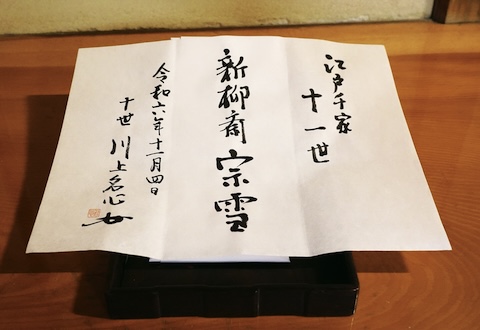 江戸千家
十一世
新柳斎
宗雪
令和六年十一月四日
十世 川上名心